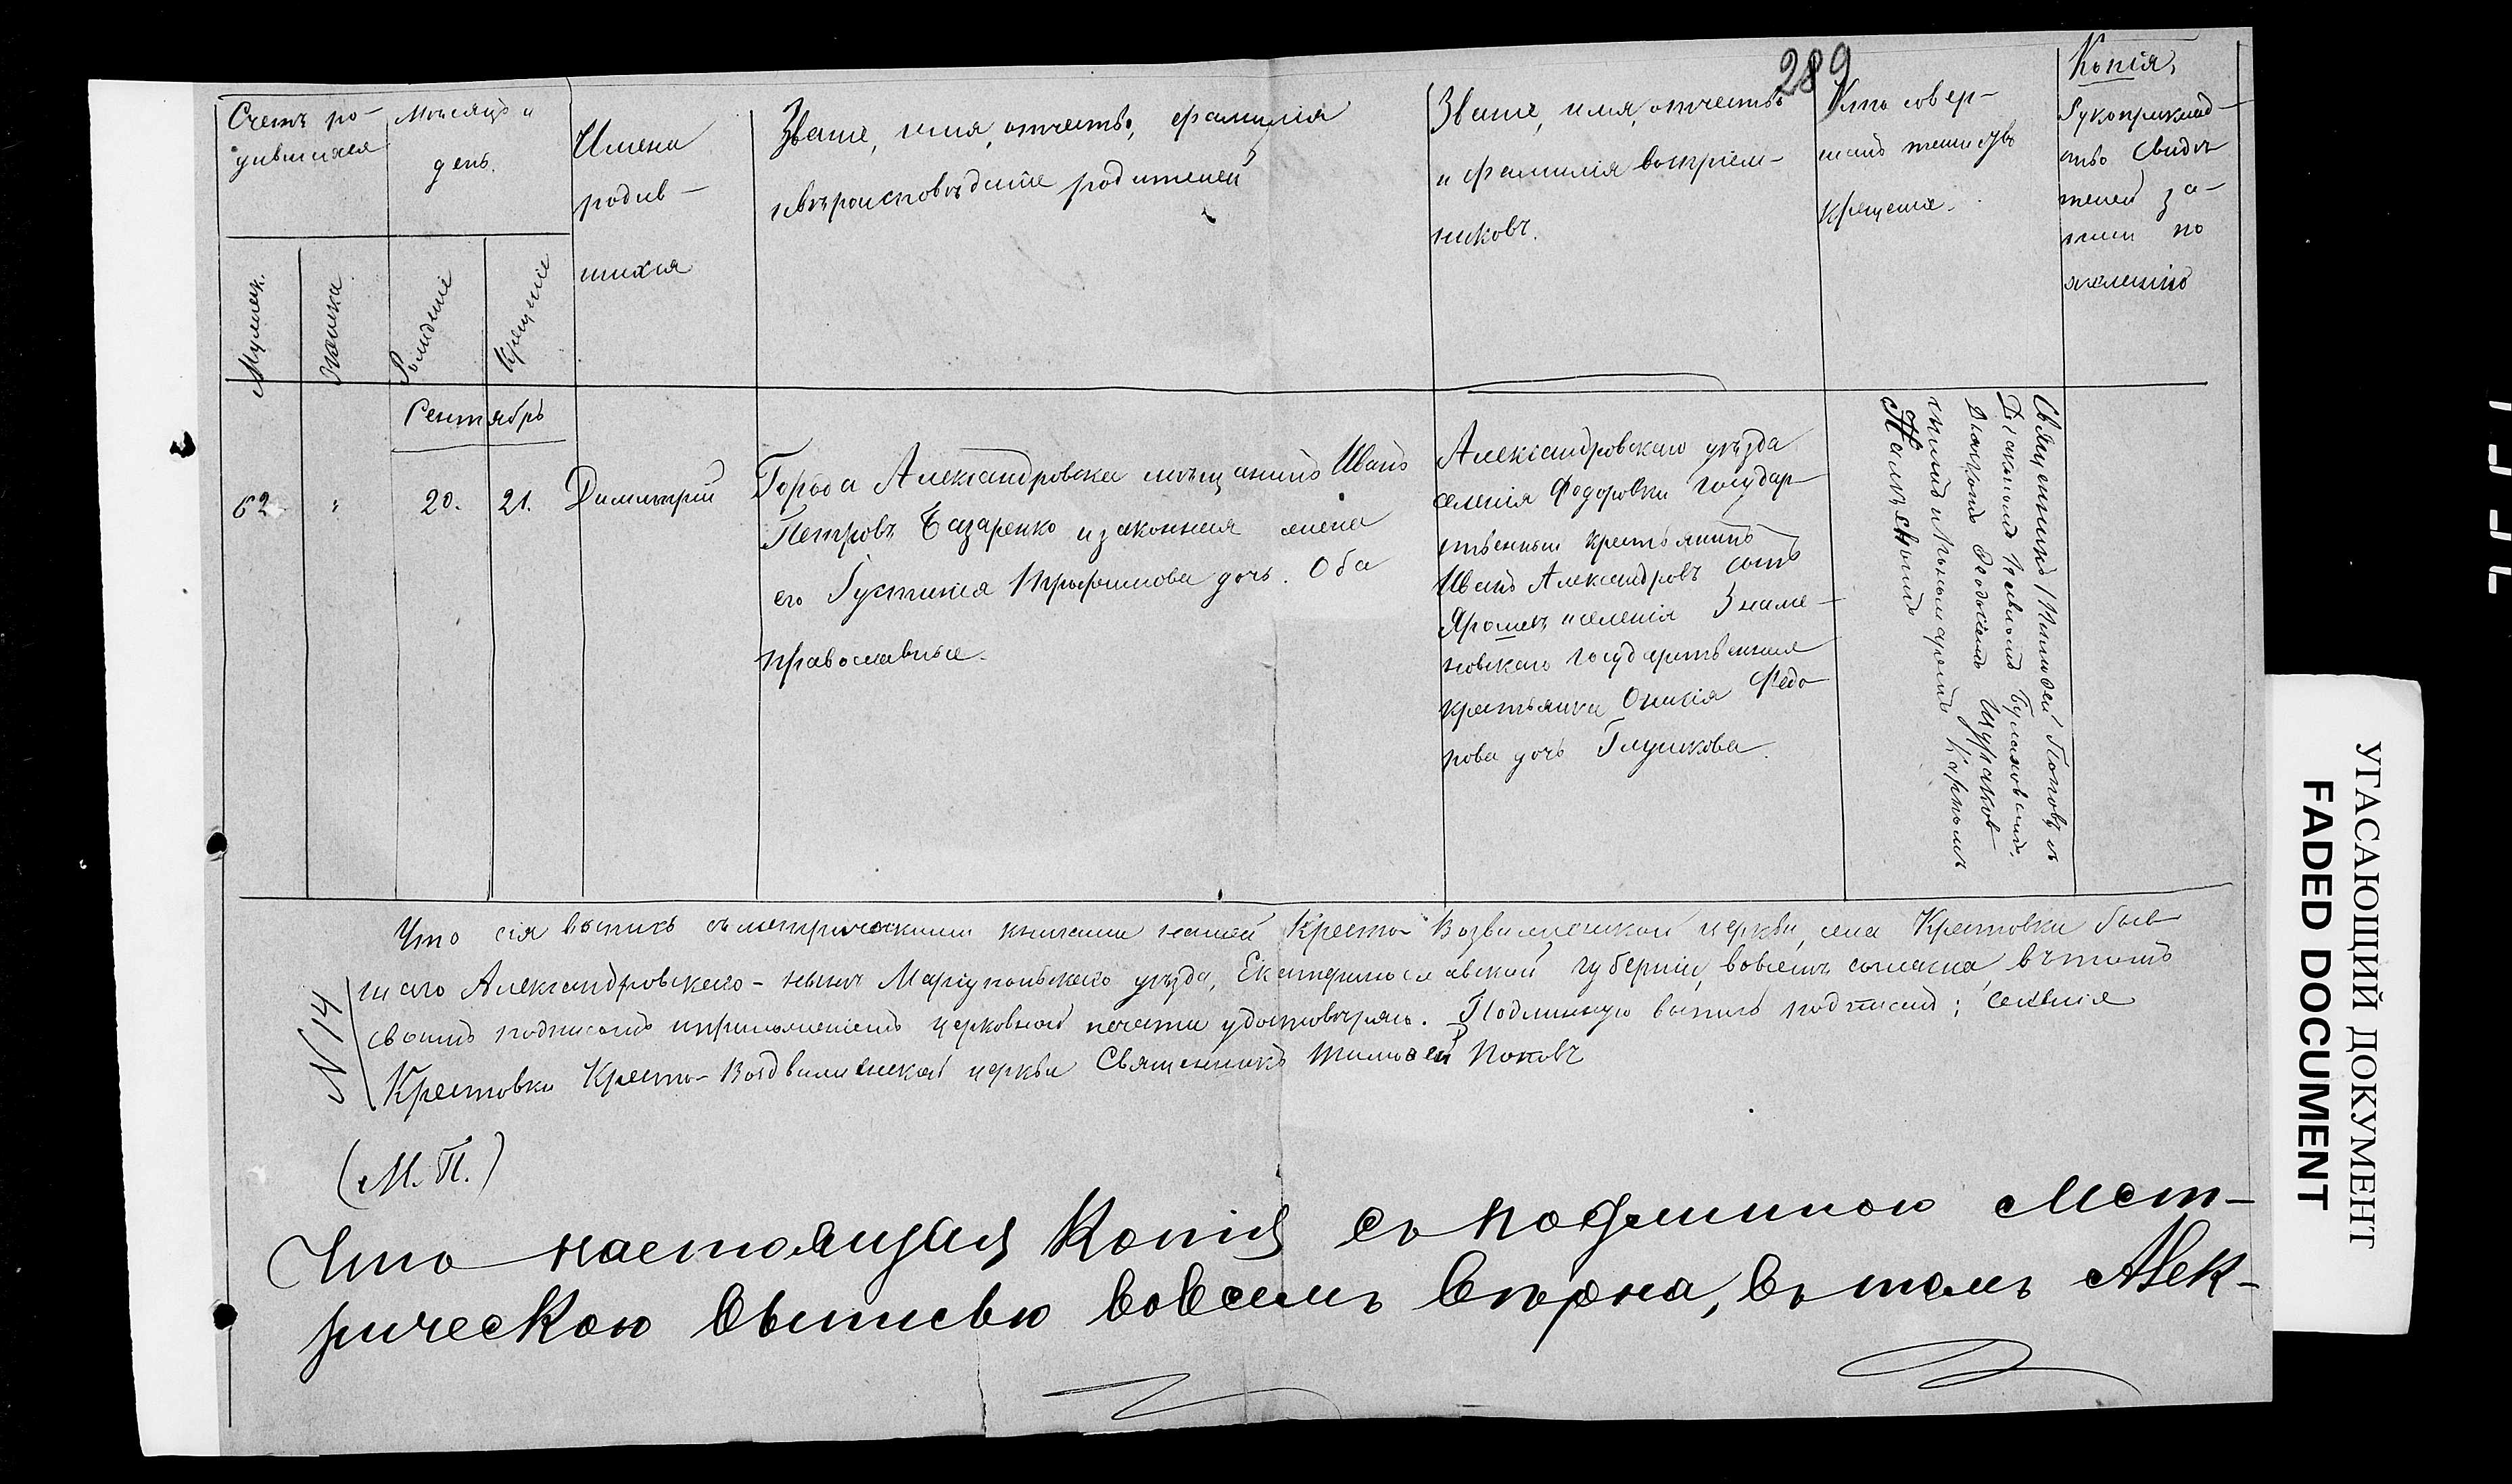 289
Копія.
Счетъ ро-
дившихся
Мѣсяцъ и
день.
Имена
родив-
шихся
Званіе, имя, отчество, фамилія
и вѣроисповѣданіе родителей
Званіе, имя, отчество
и фамилія воспріем-
никовъ.
Кто совер-
шалъ таинство
крещенія.
Рукоприклад-
ство свидѣ
телей за-
писи по
желанію
Мужеск.
Женска
Рожденіе
Крещеніе
Сентябрь
62
"
20.
21.
Димитрій
Города Александровска мѣщанинъ Иванъ
Петровъ Базаренко и законная жена
его Густинія Трофимова дочь. Оба
православные.
Александровскаго уѣзда
селенія Федоровки Государ-
ственный крестьянинъ
Иванъ Александровъ сынъ
селенія Знаме-
новскаго государственная
крестьянка Федо
рова дочь Глушкова.
Священникъ Тимофей Поповъ съ
Діакономъ
Дьячкомъ
и Пономаремъ
№ 14
Что сія выпись съ метрическими книгами нашей Кресто-Воздвиженской церкви, села Крестовки быв
шаго Александровскаго - нынѣ Маріупольскаго уѣзда, Екатеринославской губерніи, вовсемъ согласна, въ томъ
своимъ подписомъ и приложеніемъ церковной печати удостовѣряю. Подлинную выпись подписалъ: селенія
Крестовки Кресто-Воздвиженской церкви Священникъ Тимофей Поповъ
(М. П.)
Что настоящая копія съ подлинною мет-
рическою выписью вовсемъ вѣрна, въ томъ Алек-
УГАСАЮЩИЙ ДОКУМЕНТ
FADED DOCUMENT